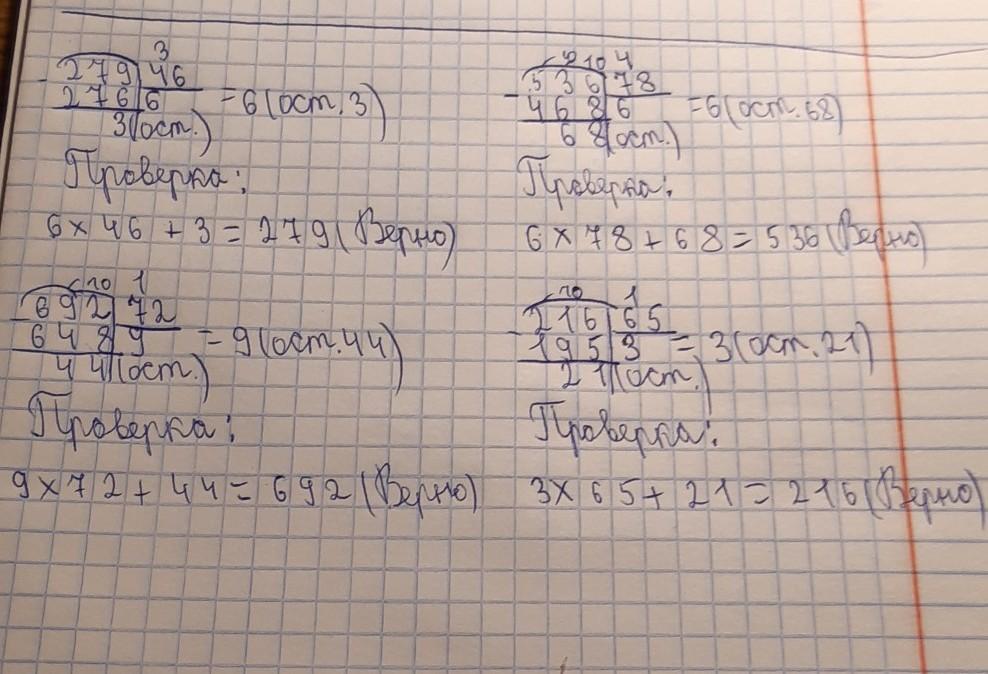 3
- 279 | 46
276 | 6 = 6 (ост. 3)
3 (ост.)
Проверка:
6 × 46 + 3 = 279 (Верно)
10 4
- 536 | 78
468 | 6 = 6 (ост. 68)
68 (ост.)
Проверка:
6 × 78 + 68 = 536 (Верно)
10 1
- 692 | 72
648 | 9 = 9 (ост. 44)
44 (ост.)
Проверка:
9 × 72 + 44 = 692 (Верно)
10 1
- 216 | 65
195 | 3 = 3 (ост. 21)
21 (ост.)
Проверка:
3 × 65 + 21 = 216 (Верно)